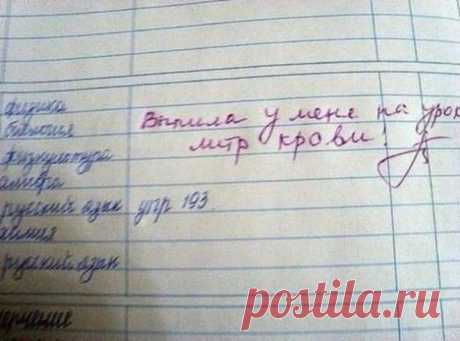 физика
биология Выпила у меня на урок
физкультура литр крови!
алгебра
русский язык упр 193.
химия
русский язык
черчение
postila.ru